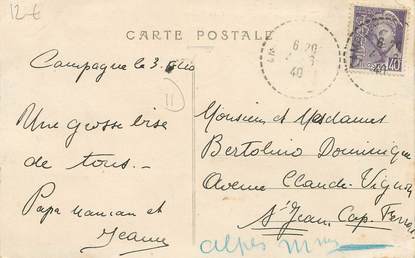 12-€
CARTE POSTALE
6 20
40
40
Campagne le 3.
Une grosse bise
de tous.
Papa maman et
Jeanne
Monsieur et Mesdames
Bertolino Dominique
Avenue Claude Vignon
St Jean Cap. Ferrat
alpes mmes